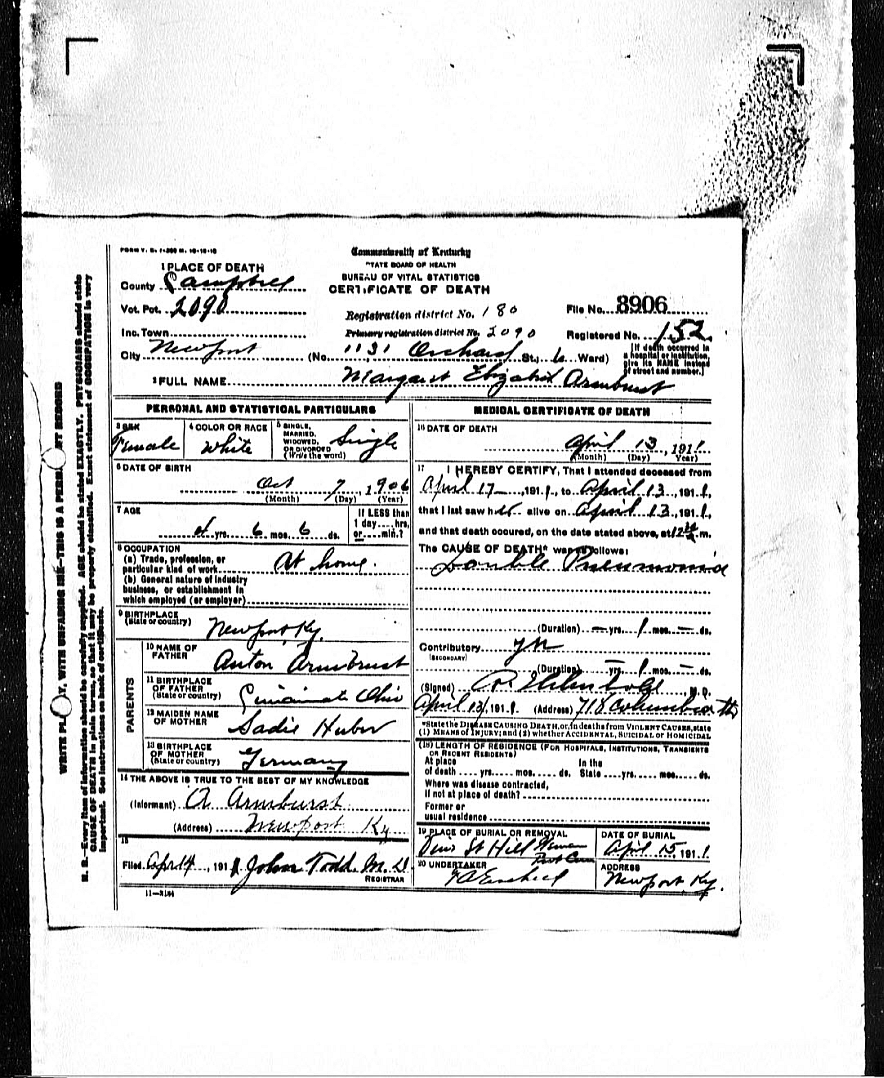 FORM V. S. 1-
Commonwealth of Kentucky
STATE BOARD OF HEALTH
BUREAU OF VITAL STATISTICS
CERTIFICATE OF DEATH
1 PLACE OF DEATH
County Campbell
Vot. Pct. 2090
Inc. Town
City Newport (No. 1131 Orchard St.; 6 Ward)
Registration district No. 180
Primary registration district No. 2090
File No. 8906
Registered No. 152
[If death occurred in a hospital or institution, give its NAME instead of street and number.]
2 FULL NAME Margaret Elizabeth Armburst
PERSONAL AND STATISTICAL PARTICULARS
3 SEX Female
4 COLOR OR RACE White
5 SINGLE, MARRIED, WIDOWED, OR DIVORCED (Write the word) Single
6 DATE OF BIRTH
Oct 7, 1906
(Month) (Day) (Year)
7 AGE
4 yrs. 6 mos. 6 ds.
If LESS than 1 day....hrs, or....min.?
8 OCCUPATION
(a) Trade, profession, or particular kind of work At home.
(b) General nature of industry business, or establishment in which employed (or employer)
9 BIRTHPLACE (State or country) Newport, Ky.
PARENTS
10 NAME OF FATHER Anton Armbrust
11 BIRTHPLACE OF FATHER (State or country) Cincinnati Ohio
12 MAIDEN NAME OF MOTHER Sadie Huber
13 BIRTHPLACE OF MOTHER (State or country) Germany
14 THE ABOVE IS TRUE TO THE BEST OF MY KNOWLEDGE
(Informant) A Armburst
(Address) Newport Ky
15
Filed Apr 14, 1911 John Todd M. D.
REGISTRAR
11-3184
MEDICAL CERTIFICATE OF DEATH
16 DATE OF DEATH
April 13, 1911
(Month) (Day) Year)
17 I HEREBY CERTIFY, That I attended deceased from
April 17, 1911, to April 13, 1911,
that I last saw her alive on April 13, 1911,
and that death occured, on the date stated above, at 12 m.
The CAUSE OF DEATH* was as follows:
Double Pneumonia
(Duration) — yrs. 1 mos. — ds.
Contributory
(SECONDARY)
(Duration) — yrs. 1 mos. — ds.
(Signed) M. D.
April 13, 1911. (Address) 718 Columbia
*State the DISEASE CAUSING DEATH, or, in deaths from VIOLENT CAUSES, state
(1) MEANS OF INJURY; and (2) whether ACCIDENTAL, SUICIDAL or HOMICIDAL
(18) LENGTH OF RESIDENCE (FOR HOSPITALS, INSTITUTIONS, TRANSIENTS OR RECENT RESIDENTS)
At place of death .... yrs.....mos.....ds. In the State....yrs.....mos.....ds.
Where was disease contracted, if not at place of death?
Former or usual residence
19 PLACE OF BURIAL OR REMOVAL
St Hill
DATE OF BURIAL
April 15, 1911
20 UNDERTAKER
ADDRESS
Newport, Ky.
WRITE PLAINLY, WITH UNFADING INK—THIS IS A PERMANENT RECORD
N. B.—Every item of information should be carefully supplied. AGE should be stated EXACTLY. PHYSICIANS should state
CAUSE OF DEATH in plain terms, so that it may be properly classified. Exact statement of OCCUPATION is very
important. See instructions on back of certificate.